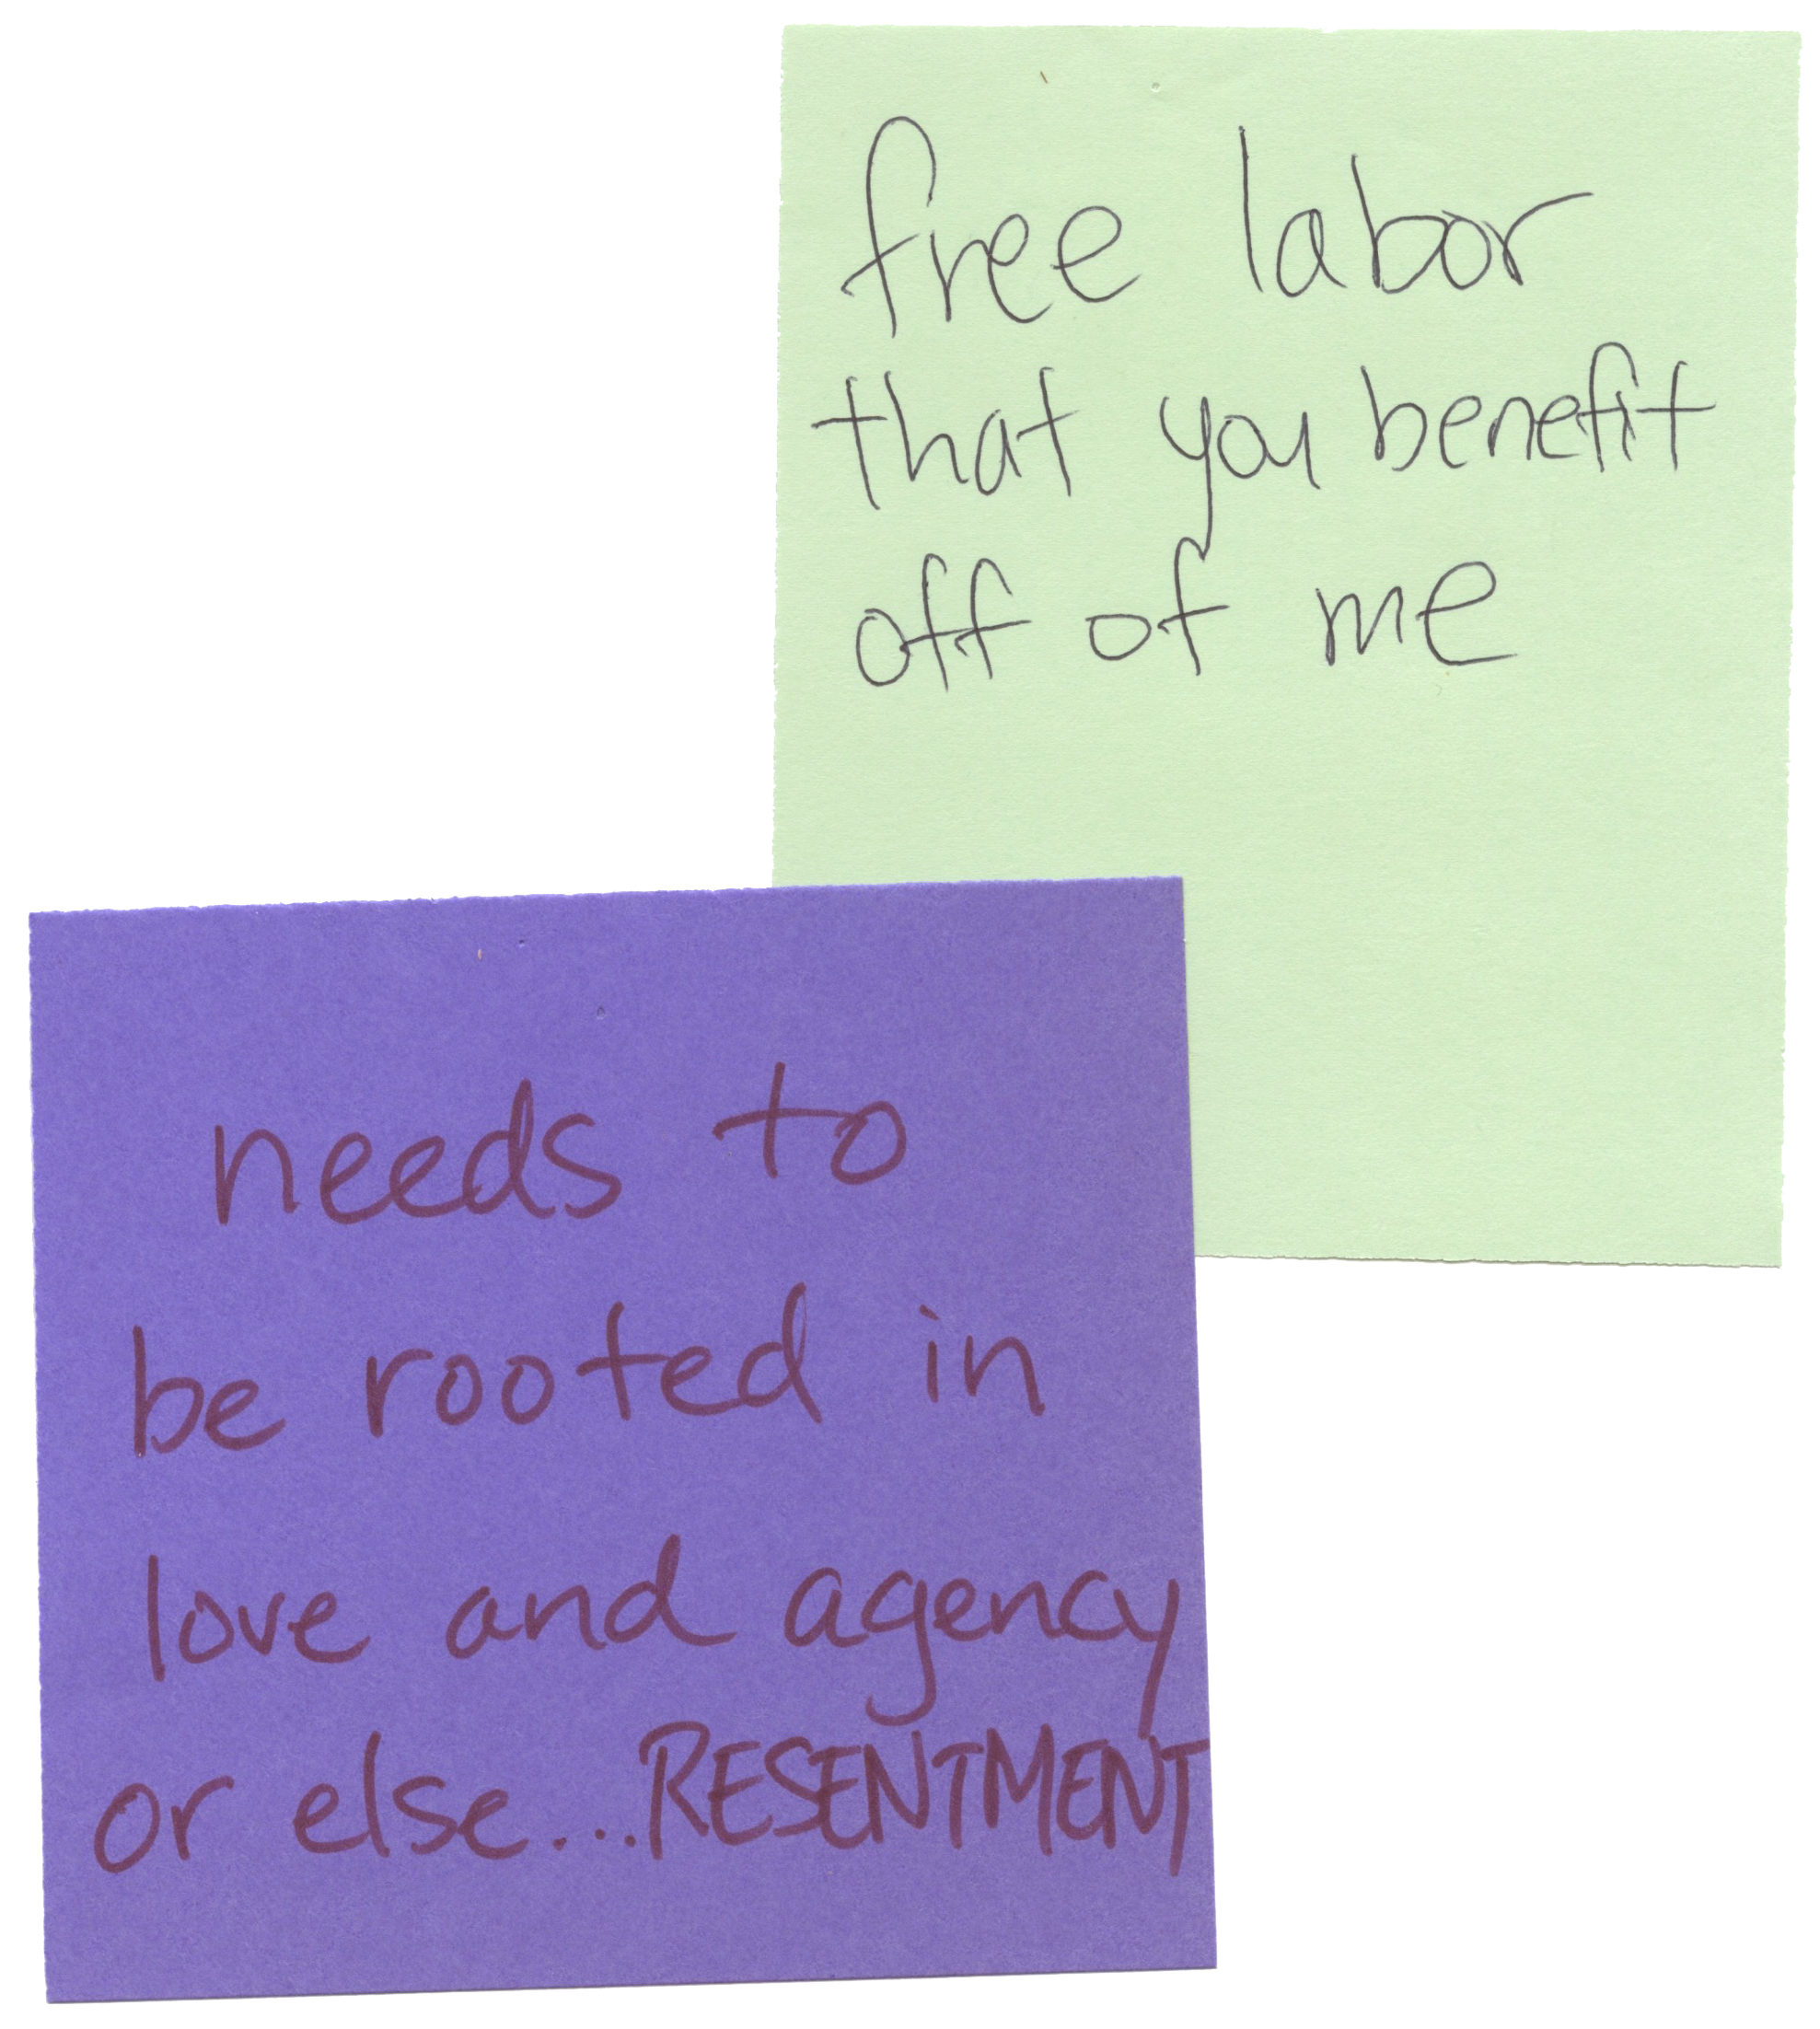 free labor
that you benefit
off of me
needs to
be rooted in
love and agency
or else...RESENTMENT